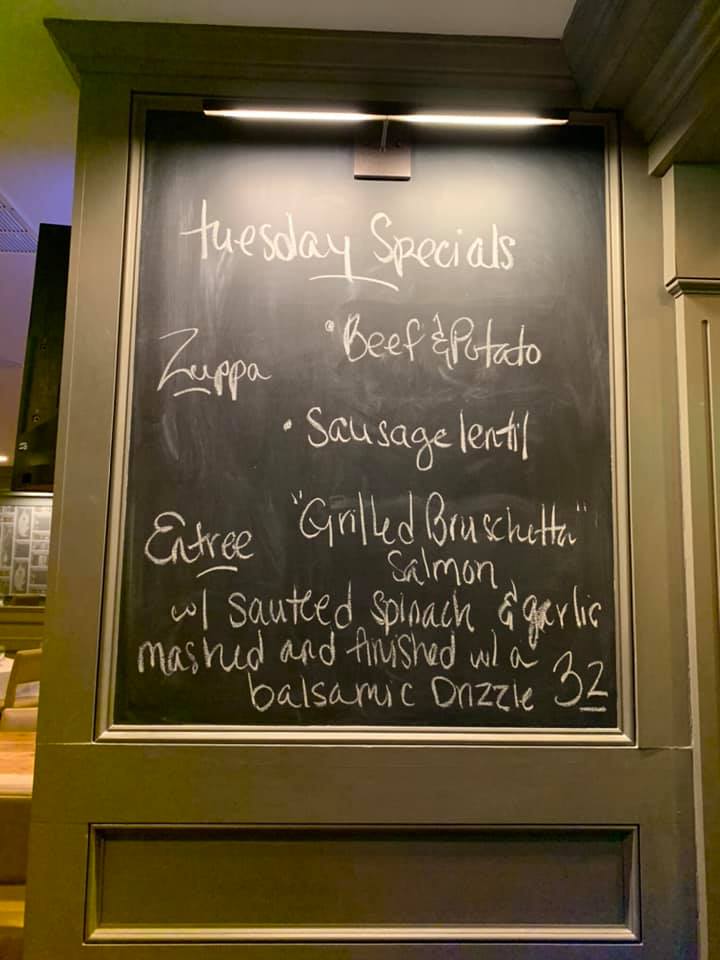 tuesday Specials
Zuppa
• Beef & Potato
• Sausage lentil
Entree
"Grilled Bruschetta"
Salmon
w/ sauteed spinach & garlic
mashed and finished w/ a
balsamic Drizzle 32